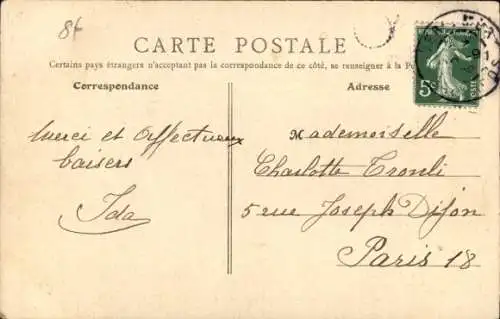 8f
CARTE POSTALE
Certains pays étrangers n'acceptant pas la correspondance de ce côté, se renseigner à la Po
Correspondance
Adresse
5c
POSTES
Merci et affectueux
baisers
Ida
Mademoiselle
Charlotte Tronli
5 rue Joseph Dijon
Paris 18